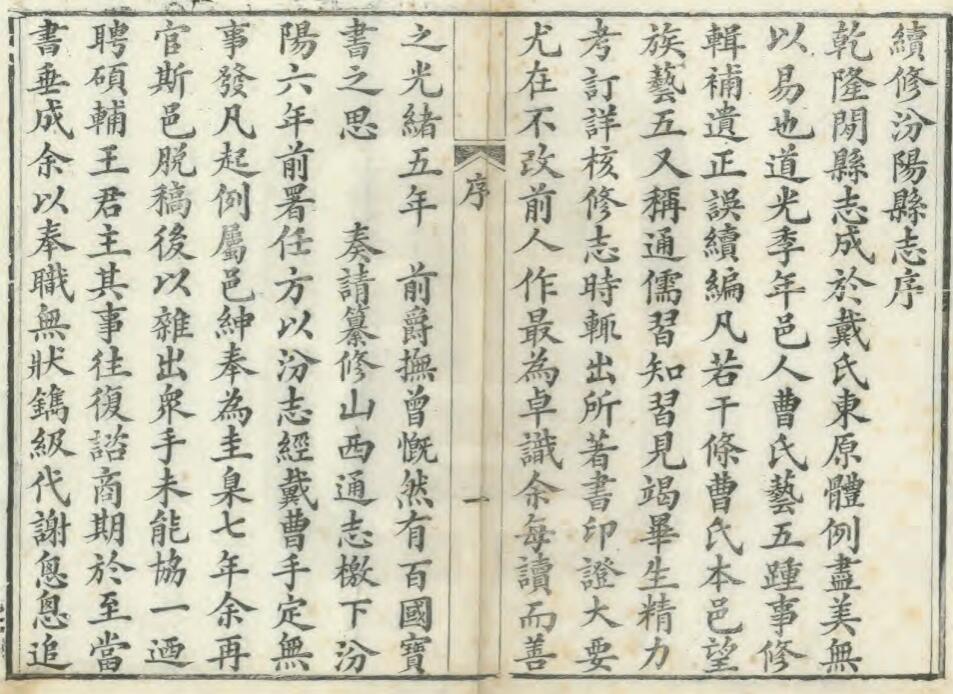 續修汾陽縣志序
乾隆閒縣志成於戴氏東原體例盡美無
以易也道光季年邑人曹氏藝五踵事修
輯補遺正誤續編凡若干條曹氏本邑望
族藝五又稱通儒習知習見竭畢生精力
考訂詳核修志時輒出所著書印證大要
尤在不改前人作最為卓識余每讀而善
序
一
之光緒五年　前爵撫曾慨然有百國寶
書之思　奏請纂修山西通志檄下汾
陽六年前署任方以汾志經戴曹手定無
事發凡起例屬邑紳奉為圭臬七年余再
官斯邑脱稿後以雜出衆手未能協一迺
聘碩輔王君主其事往復諮商期於至當
書垂成余以奉職無狀鐫級代謝悤悤追